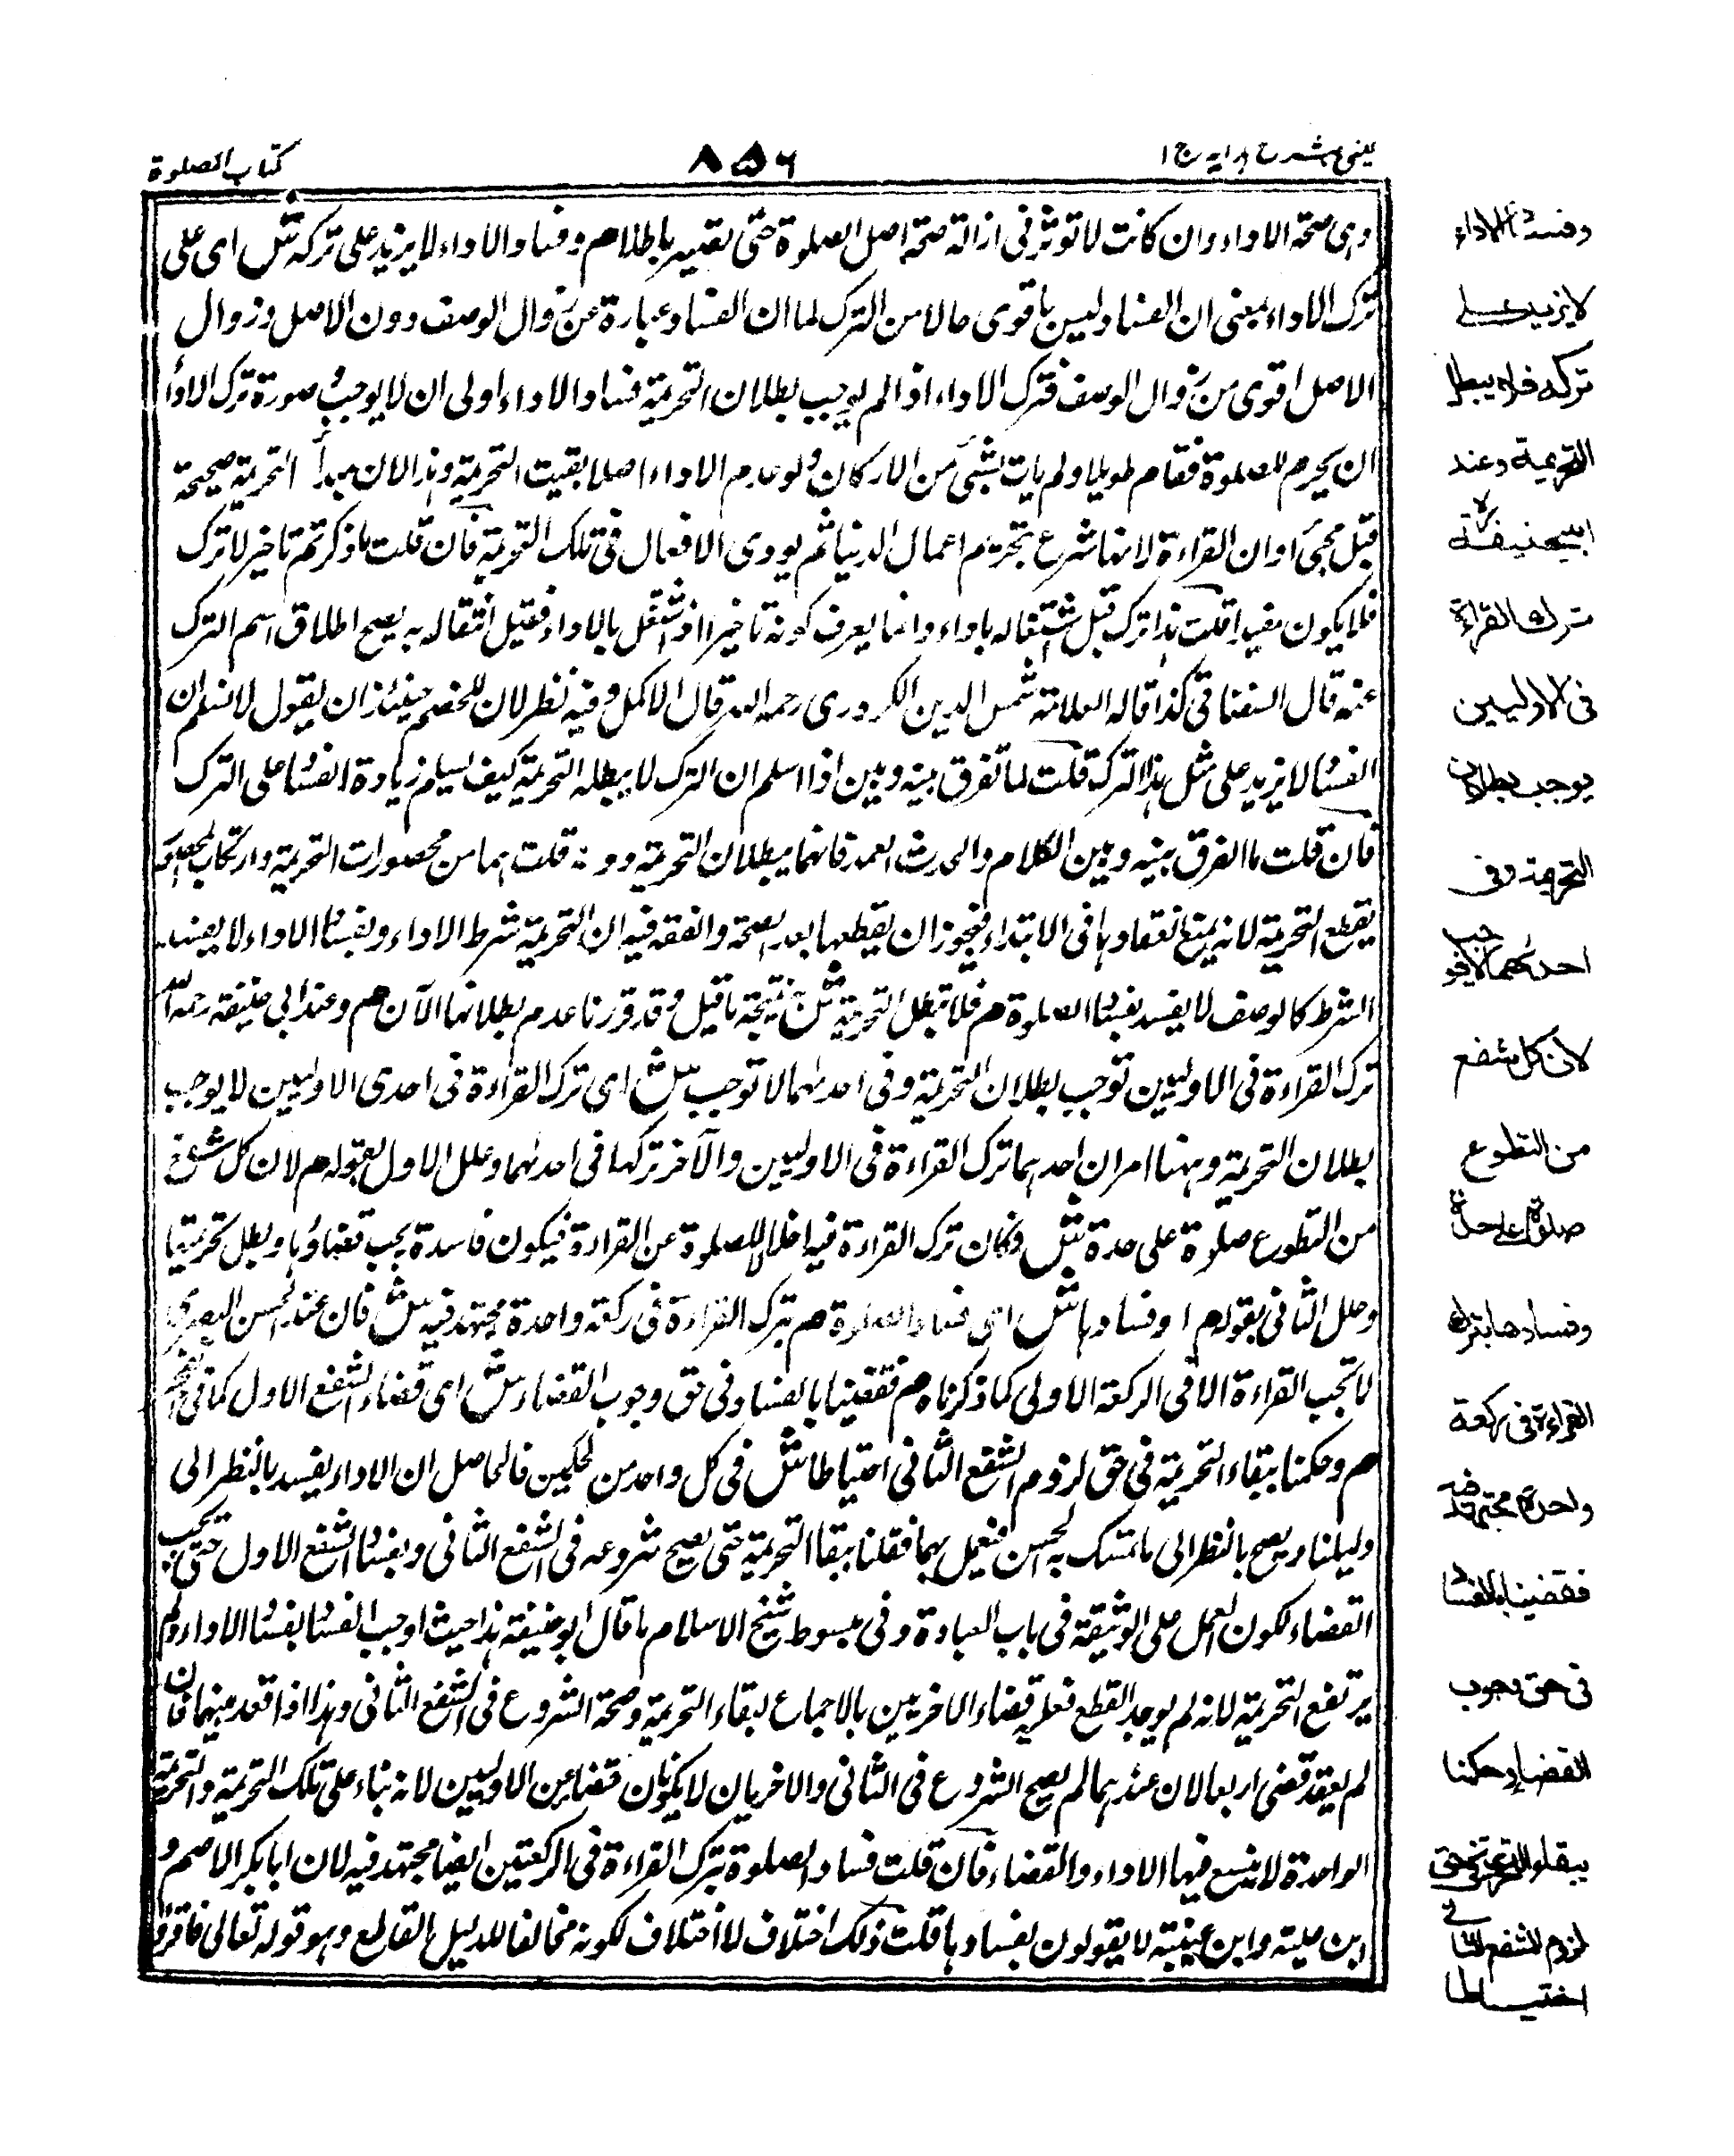 عینی شرح ہدایہ ج ١
٨٥٦
كتاب الصلوة
وہی صحة الاداء وان كانت لا توثر فى ازالة صحة اصل الصلوة حتى تصير باطلا م وفساد الاداء لا يزيد على تركه ش اى على
ترك الاداء بمعنى ان الفساد ليس باقوى حالا من الترك لما ان الفساد عبارة عن زوال الوصف دون الاصل وزوال
الاصل اقوى من زوال الوصف فترك الاداء اذا لم يوجب بطلان التحريمة ففساد الاداء اولى ان لا يوجب وصورة ترك الاداء
ان يحرم للصلوة فقام طويلا ولم يات بشئ من الاركان ولو عدم الاداء اصلا بقيت التحريمة وہذا لان مبدأ التحريمة صحيحة
قبل مجئ اوان القراءة لانها شرع بتحريم اعمال الدنيا ثم يودى الافعال فى تلك التحريمة فان قلت ما ذكرتم تاخير لا ترك
فلا يكون مفيدا قلت ہذا ترك قبل اشتغاله باداء وانما يعرف كونه تاخيرا اذا اشتغل بالاداء فقبل انتقاله به يصح اطلاق اسم الترك
عنه قال السغناقى كذا قاله العلامة شمس الدين الكردرى رحمه الله قال الاكمل وفيه نظر لان للخصم حينئذ ان يقول لا نسلم ان
الفساد لا يزيد على مثل ہذا الترك قلت لما تفرق بينه وبين اذا اسلم ان الترك لا يبطله التحريمة كيف يسلم زيادة الفساد على الترك
فان قلت ما الفرق بينه وبين الكلام والحدث العمد فانهما يبطلان التحريمة دونه قلت ہما من محظورات التحريمة وارتكاب المحظور
يقطع التحريمة لانه يمنع انعقادہا فى الابتداء فيجوز ان يقطعها بعد الصحة والفقه فيه ان التحريمة شرط الاداء وبفساد الاداء لا يفسد
الشرط كالوصف لا يفسد بفساد الصلوة م فلا تبطل التحريمة ش نتيجة ما قيل وقد قررنا عدم بطلانها الآن م وعند ابى حنيفة رحمه الله
ترك القراءة فى الاوليين توجب بطلان التحريمة وفى احدٰہما لا توجب ش اى ترك القراءة فى احدى الاوليين لا يوجب
بطلان التحريمة وہہنا امران احدہما ترك القراءة فى الاوليين والآخر تركها فى احدٰہما وعلل الاول بقوله م لان كل شفع
من التطوع صلوة على حدة ش فكان ترك القراءة فيه اخلالا للصلوة عن القراءة فيكون فاسدة يجب قضاؤہا وبطل تحريمتها
وعلل الثانى بقوله م وفسادہا ش اى فساد الصلوة م بترك القراءة فى ركعة واحدة مجتهد فيه ش فان عند الحسن البصرى
لا تجب القراءة الا فى الركعة الاولى كما ذكرناہ م فقضينا بالفساد فى حق وجوب القضاء ش اى قضاء الشفع الاول كما فى الفجر
م وحكمنا ببقاء التحريمة فى حق لزوم الشفع الثانى احتياطا ش فى كل واحد من الحكمين فالحاصل ان الاداء يفسد بالنظر الى
دليلنا ويصح بالنظر الى ما تمسك به الحسن فنعمل بهما فقلنا ببقاء التحريمة حتى يصح شروعه فى الشفع الثانى وبفساد الشفع الاول حتى يجب
القضاء لكون العمل على الوثيقة فى باب العبادة وفى مبسوط شيخ الاسلام ما قال ابو حنيفة ہذا حيث اوجب الفساد بفساد الاداء ولم
يرتفع التحريمة لانه لم يوجد القطع فعليه قضاء الاخريين بالاجماع لبقاء التحريمة وصحة الشروع فى الشفع الثانى وہذا اذا قعد بينهما فان
لم يقعد قضى اربعا لان عندہما لم يصح الشروع فى الثانى والاخريان لا يكونان قضاء عن الاوليين لانه بناء على تلك التحريمة والتحريمة
الواحدة لا يتسع فيها الاداء والقضاء فان قلت فساد الصلوة بترك القراءة فى الركعتين ايضا مجتهد فيه لان ابا بكر الاصم و
ابن علية وابن عيينة لا يقولون بفسادہا قلت ذلك اختلاف لا اختلاف لكونه مخالفا للدليل القاطع وہو قوله تعالى فاقرؤا
وفساد الاداء
لا يزيد على
تركه فلا يبطل
التحريمة وعند
ابی حنیفةؒ
ترك القراءة
فى الاوليين
يوجب بطلان
التحريمة وفى
احدٰهما لا يوجب
لان كل شفع
من التطوع
صلوة على حدة
وفسادها بترك
القراءة فى ركعة
واحدة مجتهد فيه
فقضينا بالفساد
فى حق وجوب
القضاء وحكمنا
ببقاء التحريمة فى حق
لزوم الشفع الثانى
احتياطا